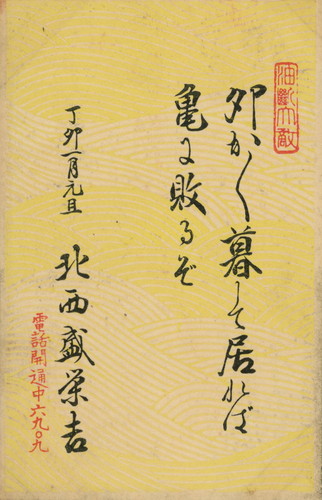 油斷大敵
卯か〱暮して居れば
亀に敗るぞ
丁卯一月元旦
北西盛栄吉
電話開通中六九〇九